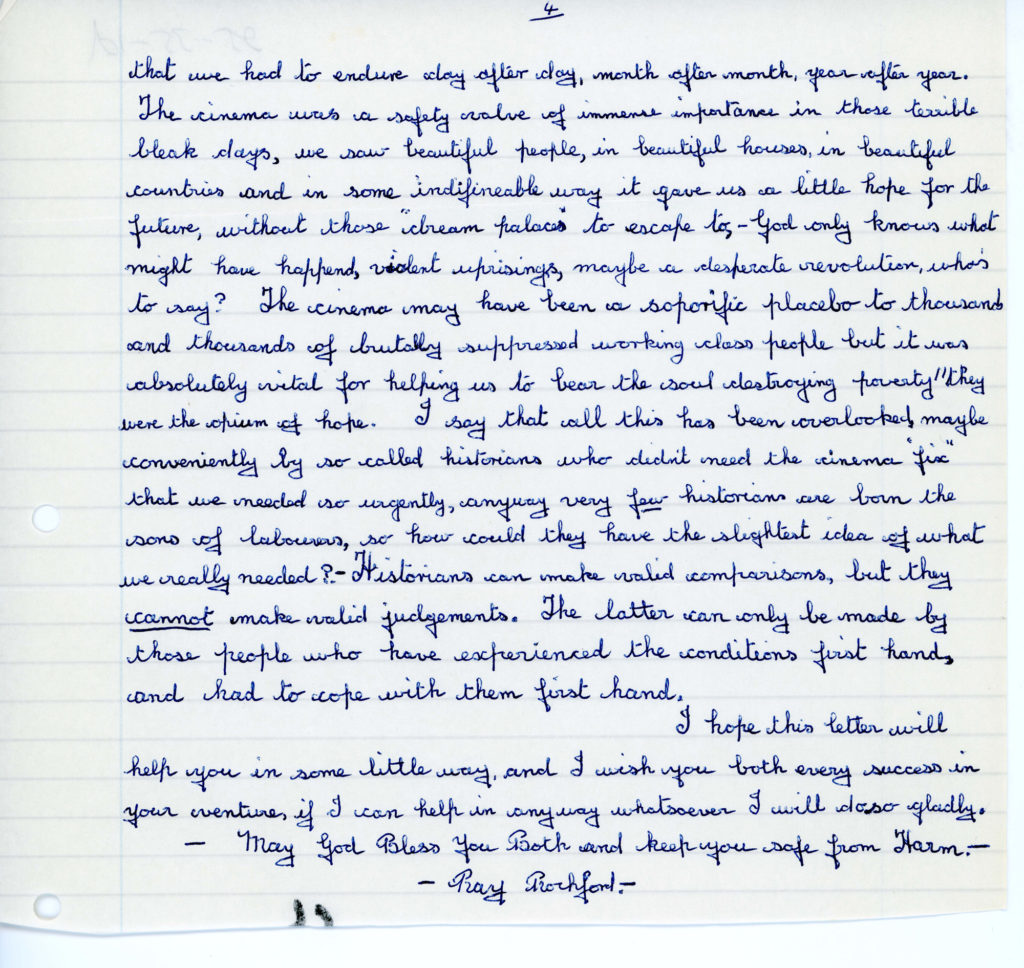 4
that we had to endure day after day, month after month, year after year.
The cinema was a safety valve of immense importance in those terrible
bleak days, we saw beautiful people, in beautiful houses, in beautiful
countries and in some indifineable way it gave us a little hope for the
future, without those "dream palaces" to escape to, - God only knows what
might have happend, violent uprisings, maybe a desperate revolution, who's
to say? The cinema may have been a soporific placebo to thousands
and thousands of brutally suppressed working class people but it was
absolutely vital for helping us to bear the soul destroying poverty" they
were the opium of hope. I say that all this has been overlooked, maybe
conveniently by so called historians who didn't need the cinema "fix"
that we needed so urgently, anyway very few historians are born the
sons of labourers, so how could they have the slightest idea of what
we really needed? - Historians can make valid comparisons, but they
cannot make valid judgements. The latter can only be made by
those people who have experienced the conditions first hand,
and had to cope with them first hand.
I hope this letter will
help you in some little way, and I wish you both every success in
your venture, if I can help in anyway whatsoever I will do so gladly.
- May God Bless You Both and keep you safe from Harm. -
- Ray Rochford. -